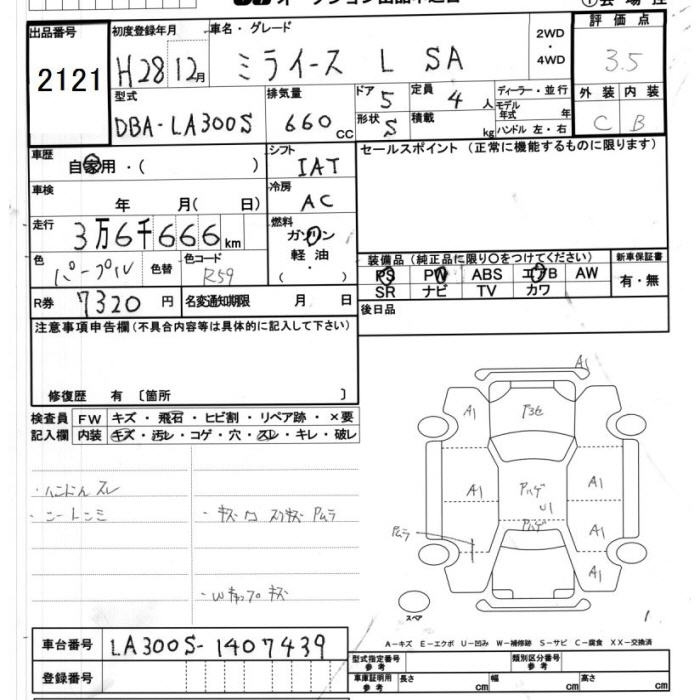 オークション出品申込書
出品番号 初度登録年月 車名・グレード 2WD ・ 4WD 評価点
2121 H28 12月 ミライース L SA 3.5
型式 排気量 ドア 5 定員 4人 ディーラー・並行 外装 内装
DBA-LA300S 660cc 形状 S 積載 kg モデル年式 年 C B
ハンドル 左・右
車歴 シフト セールスポイント (正常に機能するものに限ります)
自家用・( ) IAT
車検 冷房
年 月( 日) AC
走行 燃料
3万6千666km ガソリン
軽油
( ・ )
色 パープル 色替 色コード R59 装備品 (純正品に限り○をつけてください) 新車保証書
PS PW ABS エアB AW 有・無
R券 7320円 名変通知期限 月 日 SR ナビ TV カワ
注意事項申告欄(不具合内容等は具体的に記入して下さい) 後日品
修復歴 有 〔箇所 〕
検査員 FW キズ・飛石・ヒビ割・リペア跡・×要
記入欄 内装 キズ・汚レ・コゲ・穴・スレ・キレ・破レ
・ハンドル スレ
・シートシミ
・キズ ワ スリキズ Pムラ
・Wキャップ キズ
A1
A1 A1
A1 Pハゲ A1
U1
Pハゲ A1
Pムラ
A1
スペア
車台番号 LA300S-1407439
A－キズ E－エクボ U－凹み W－補修跡 S－サビ C－腐食 XX－交換済
登録番号 型式指定番号 参考 類別区分番号 参考
車庫証明用 参考 長さ cm 幅 cm 高さ cm